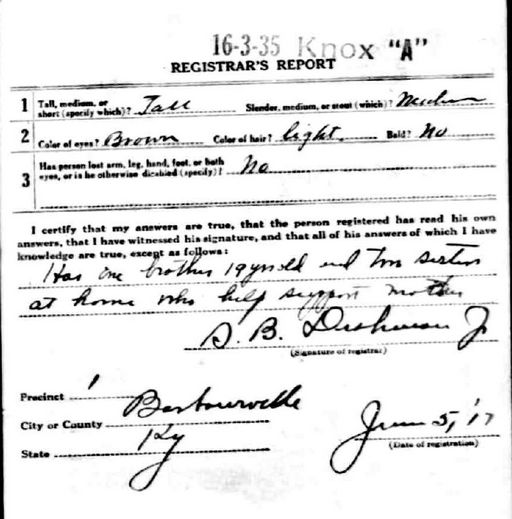 16-3-35 Knox "A"
REGISTRAR'S REPORT
1 Tall, medium, or short (specify which)? Tall Slender, medium, or stout (which)? Medium
2 Color of eyes? Brown Color of hair? light Bald? No
3 Has person lost arm, leg, hand, foot, or both eyes, or is he otherwise disabled (specify)? No
I certify that my answers are true, that the person registered has read his own
answers, that I have witnessed his signature, and that all of his answers of which I have
knowledge are true, except as follows:
Has one brother 19 yrs old and two sisters
at home who help support mother
S. B. Dishman Jr
(Signature of registrar)
Precinct 1
City or County Barbourville
State Ky
June 5, '17
(Date of registration)